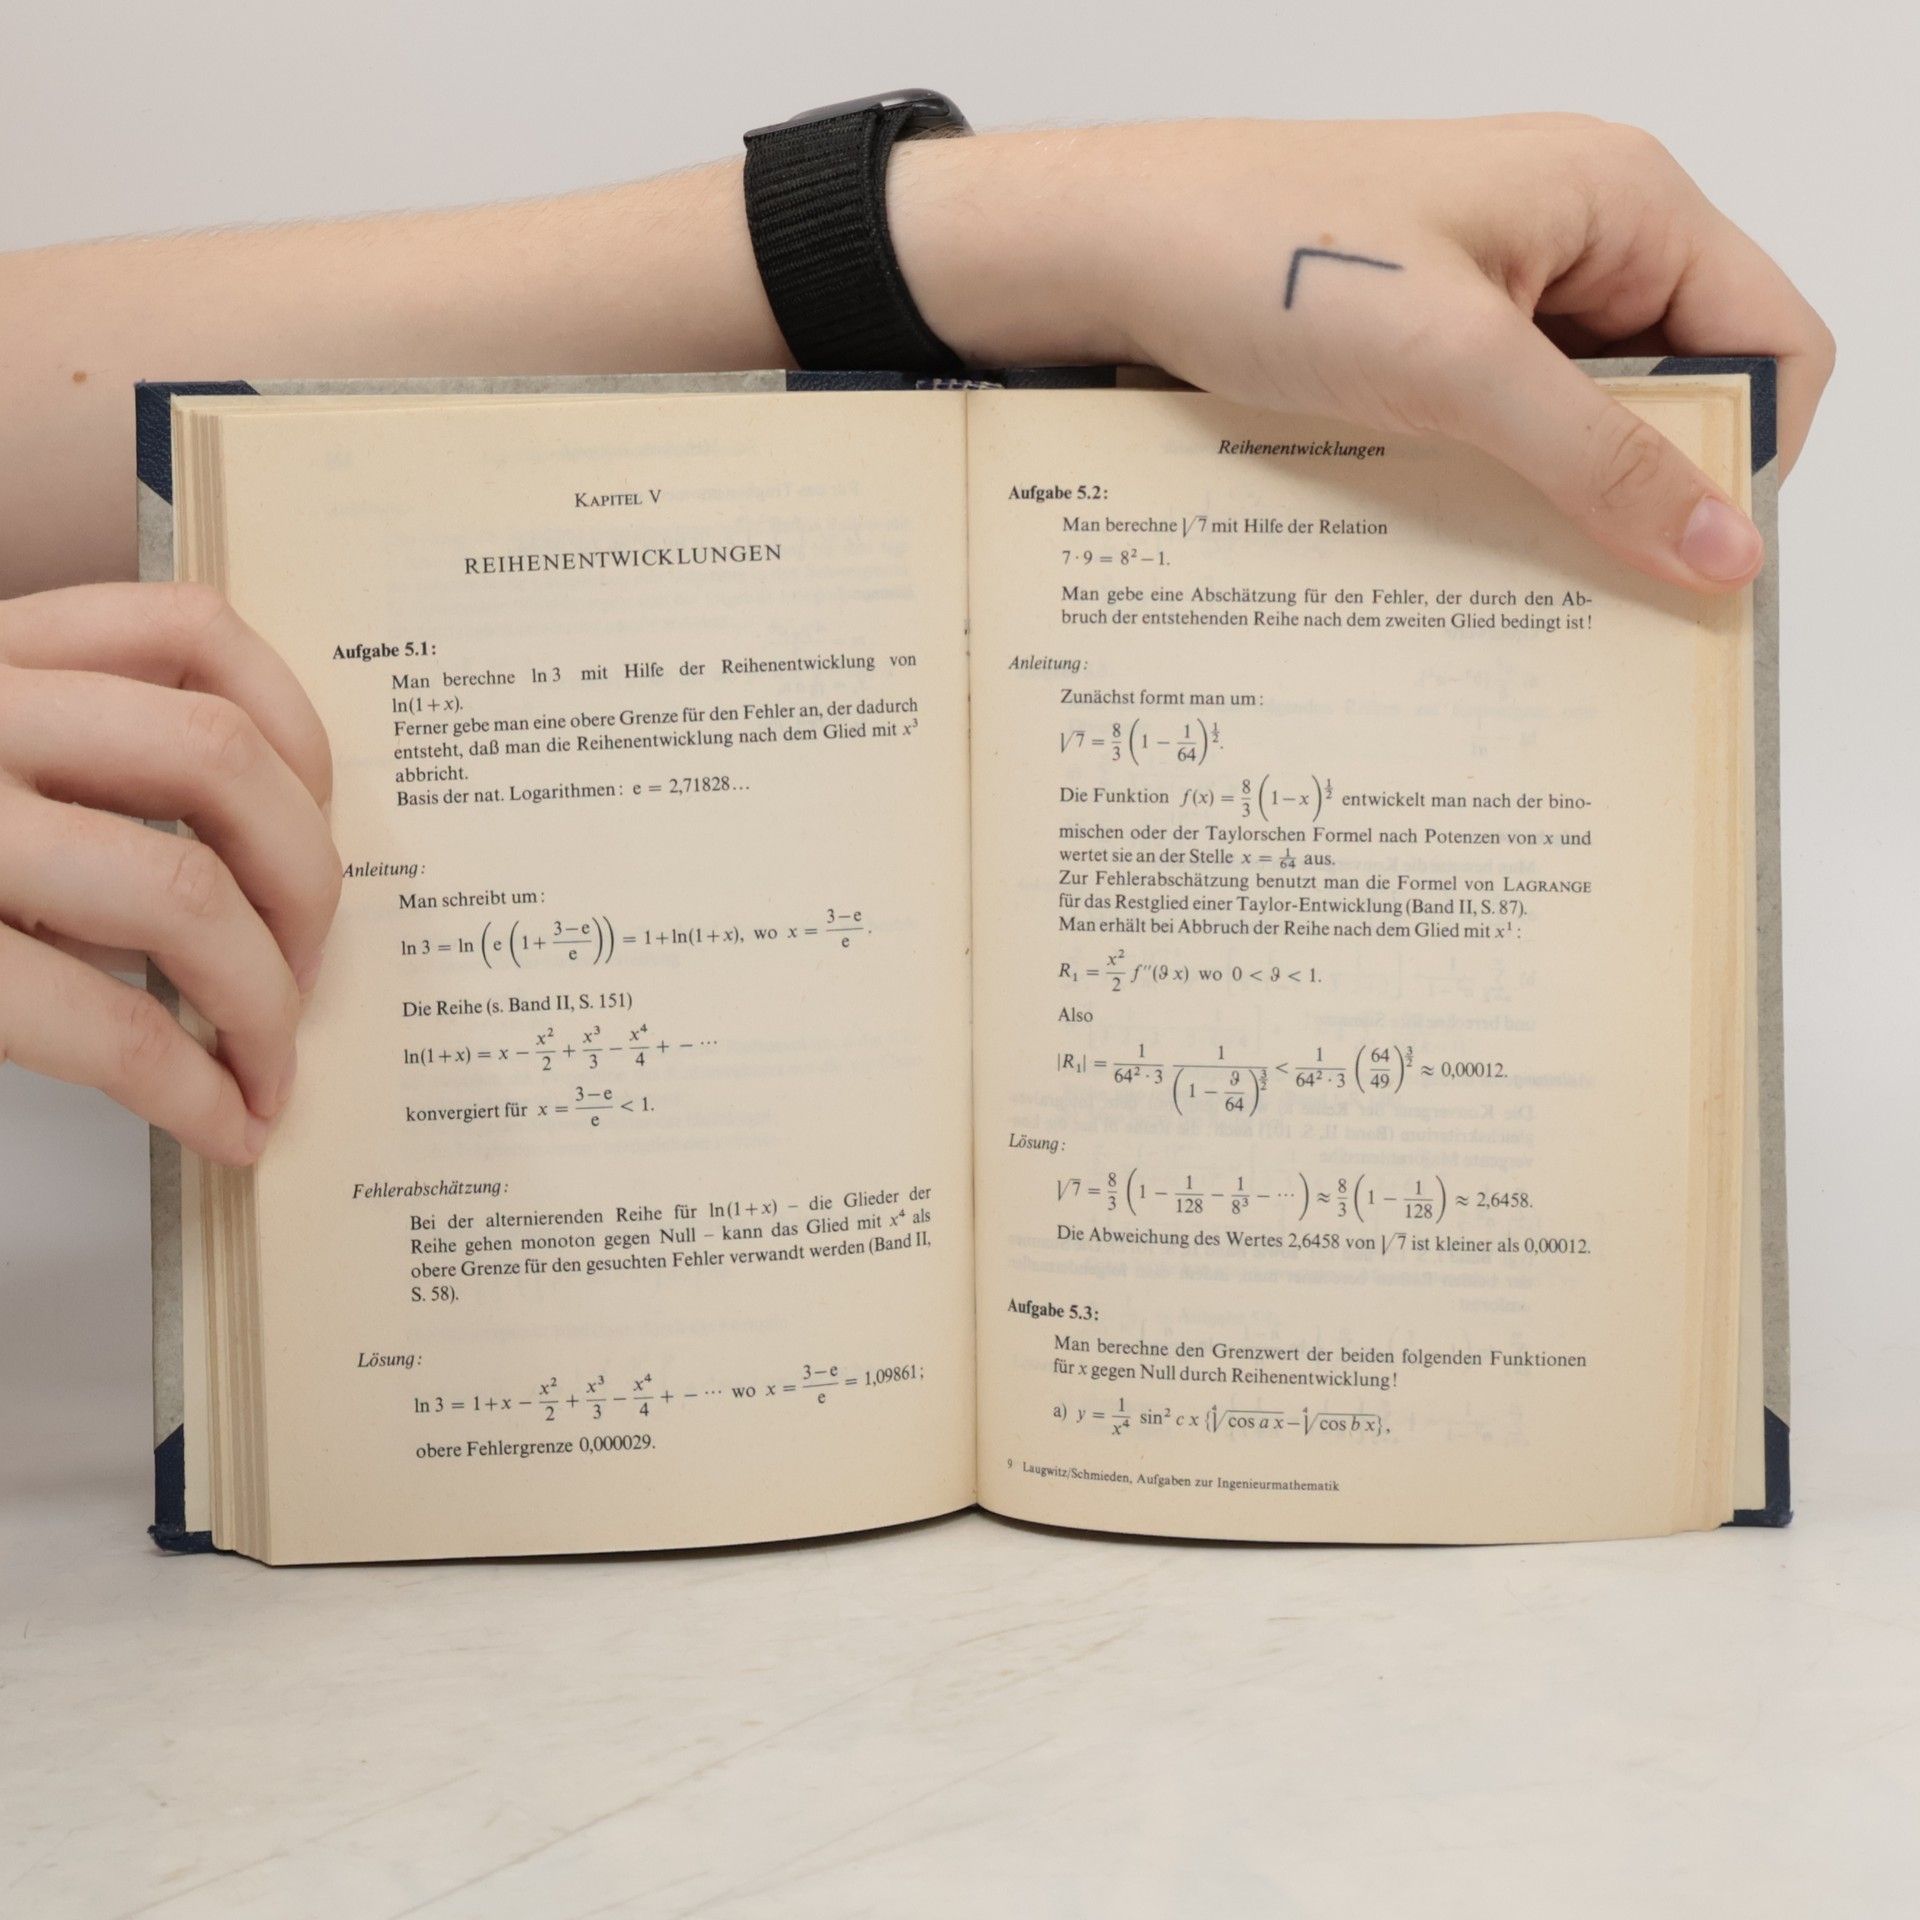 KAPITEL V
REIHENENTWICKLUNGEN
Aufgabe 5.1:
Man berechne ln 3 mit Hilfe der Reihenentwicklung von
ln(1+x).
Ferner gebe man eine obere Grenze für den Fehler an, der dadurch
entsteht, daß man die Reihenentwicklung nach dem Glied mit x³
abbricht.
Basis der nat. Logarithmen: e = 2,71828...
Anleitung:
Man schreibt um:
ln 3 = ln (e (1 + (3−e)/e)) = 1+ln(1+x), wo x = (3−e)/e.
Die Reihe (s. Band II, S. 151)
ln(1+x) = x − x²/2 + x³/3 − x⁴/4 + − ···
konvergiert für x = (3−e)/e < 1.
Fehlerabschätzung:
Bei der alternierenden Reihe für ln(1+x) – die Glieder der
Reihe gehen monoton gegen Null – kann das Glied mit x⁴ als
obere Grenze für den gesuchten Fehler verwandt werden (Band II,
S. 58).
Lösung:
ln 3 = 1+x − x²/2 + x³/3 − x⁴/4 + − ··· wo x = (3−e)/e = 1,09861;
obere Fehlergrenze 0,000029.
Reihenentwicklungen
Aufgabe 5.2:
Man berechne √7 mit Hilfe der Relation
7·9 = 8²−1.
Man gebe eine Abschätzung für den Fehler, der durch den Ab-
bruch der entstehenden Reihe nach dem zweiten Glied bedingt ist!
Anleitung:
Zunächst formt man um:
√7 = 8/3 (1 − 1/64)^½.
Die Funktion f(x) = 8/3 (1−x)^½ entwickelt man nach der bino-
mischen oder der Taylorschen Formel nach Potenzen von x und
wertet sie an der Stelle x = 1/64 aus.
Zur Fehlerabschätzung benutzt man die Formel von LAGRANGE
für das Restglied einer Taylor-Entwicklung (Band II, S. 87).
Man erhält bei Abbruch der Reihe nach dem Glied mit x¹:
R₁ = x²/2 f″(ϑx) wo 0 < ϑ < 1.
Also
|R₁| = 1/(64²·3) 1/(1 − ϑ/64)^(3/2) < 1/(64²·3) (64/49)^(3/2) ≈ 0,00012.
Lösung:
√7 = 8/3 (1 − 1/128 − 1/8³ − ···) ≈ 8/3 (1 − 1/128) ≈ 2,6458.
Die Abweichung des Wertes 2,6458 von √7 ist kleiner als 0,00012.
Aufgabe 5.3:
Man berechne den Grenzwert der beiden folgenden Funktionen
für x gegen Null durch Reihenentwicklung!
a) y = 1/x⁴ sin² c x {∜cos a x − ∜cos b x},
9 Laugwitz/Schmieden, Aufgaben zur Ingenieurmathematik